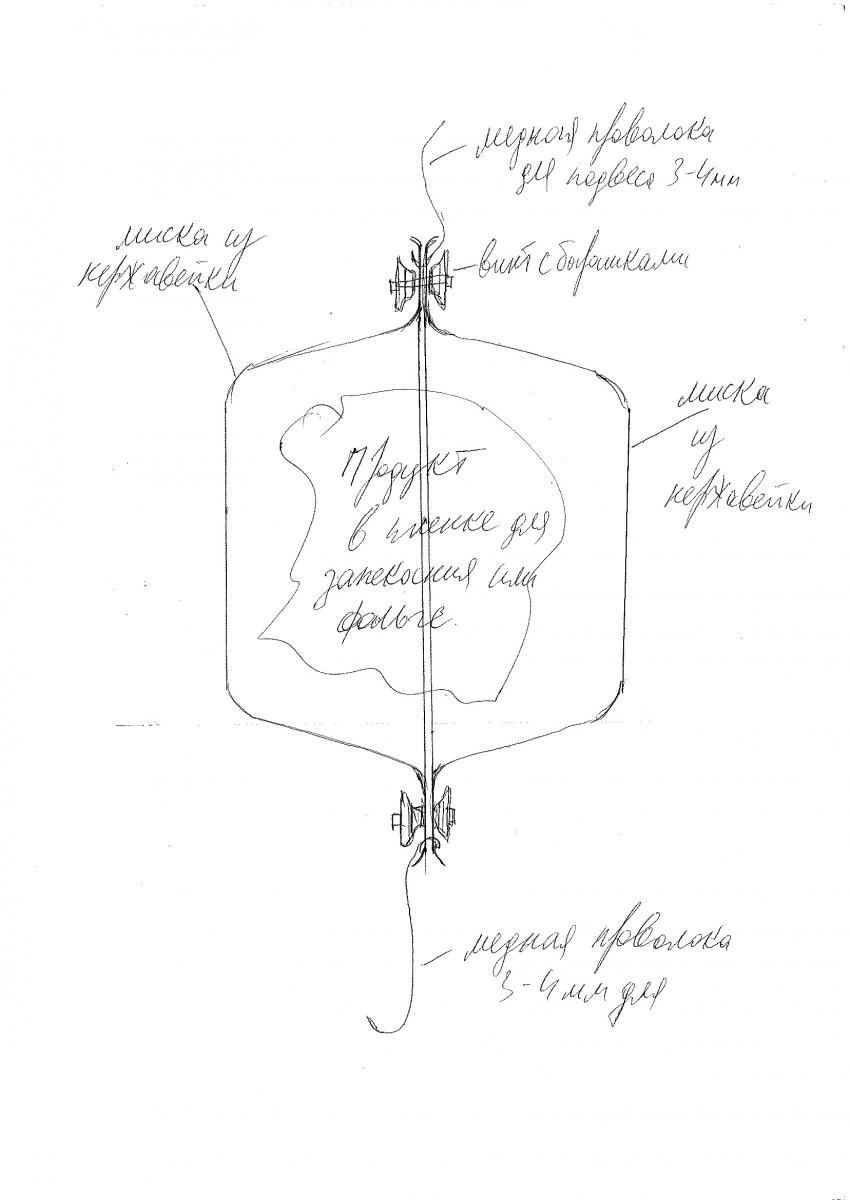 медная проволока
для подвеса 3-4мм
миска из
нержавейки
винт с барашками
миска
из
нержавейки
Продукт
в пленке для
запекания или
фольге.
медная проволока
3-4мм для